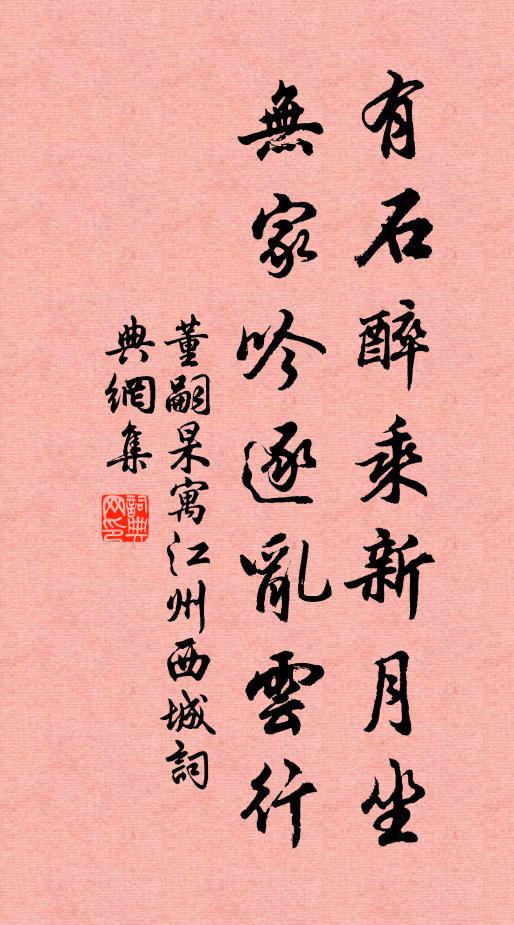 有石醉乘新月坐
無家吟逐亂雲行
董嗣杲寓江州西城詞
典網集
詞典网印